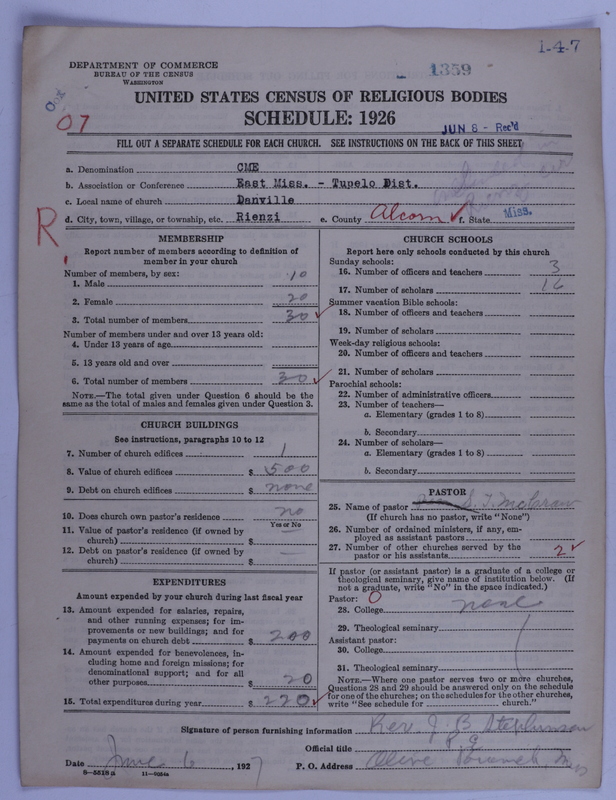 1-4-7
DEPARTMENT OF COMMERCE
BUREAU OF THE CENSUS
WASHINGTON
1359
07
UNITED STATES CENSUS OF RELIGIOUS BODIES
SCHEDULE: 1926
JUN 8 - Rec'd
FILL OUT A SEPARATE SCHEDULE FOR EACH CHURCH. SEE INSTRUCTIONS ON THE BACK OF THIS SHEET
a. Denomination CME
b. Association or Conference East Miss. - Tupelo Dist.
c. Local name of church Danville
d. City, town, village, or township, etc. Rienzi e. County Alcorn f. State Miss.
R
MEMBERSHIP
Report number of members according to definition of
member in your church
Number of members, by sex:
1. Male 10
2. Female 20
3. Total number of members 30
Number of members under and over 13 years old:
4. Under 13 years of age
5. 13 years old and over
6. Total number of members 30
NOTE.—The total given under Question 6 should be the
same as the total of males and females given under Question 3.
CHURCH BUILDINGS
See instructions, paragraphs 10 to 12
7. Number of church edifices 1
8. Value of church edifices $ 500
9. Debt on church edifices $ none
10. Does church own pastor's residence no
Yes or No
11. Value of pastor's residence (if owned by
church) $ —
12. Debt on pastor's residence (if owned by
church) $ —
EXPENDITURES
Amount expended by your church during last fiscal year
13. Amount expended for salaries, repairs,
and other running expenses; for im-
provements or new buildings; and for
payments on church debt $ 200
14. Amount expended for benevolences, in-
cluding home and foreign missions; for
denominational support; and for all
other purposes $ 20
15. Total expenditures during year $ 220
CHURCH SCHOOLS
Report here only schools conducted by this church
Sunday schools:
16. Number of officers and teachers 3
17. Number of scholars 16
Summer vacation Bible schools:
18. Number of officers and teachers
19. Number of scholars
Week-day religious schools:
20. Number of officers and teachers
21. Number of scholars
Parochial schools:
22. Number of administrative officers
23. Number of teachers—
a. Elementary (grades 1 to 8)
b. Secondary
24. Number of scholars—
a. Elementary (grades 1 to 8)
b. Secondary
PASTOR
25. Name of pastor S. T. McGraw
(If church has no pastor, write "None")
26. Number of ordained ministers, if any, em-
ployed as assistant pastors
27. Number of other churches served by the
pastor or his assistants 2
If pastor (or assistant pastor) is a graduate of a college or
theological seminary, give name of institution below. (If
not a graduate, write "No" in the space indicated.)
Pastor: 0
28. College none
29. Theological seminary
Assistant pastor:
30. College
31. Theological seminary
NOTE.—Where one pastor serves two or more churches,
Questions 28 and 29 should be answered only on the schedule
for one of the churches; on the schedules for the other churches,
write "See schedule for church."
Signature of person furnishing information Rev. J. B. Stephenson
Official title
Date June 6, 1927 P. O. Address Olive Branch, Miss
8-5518a 11-9054a